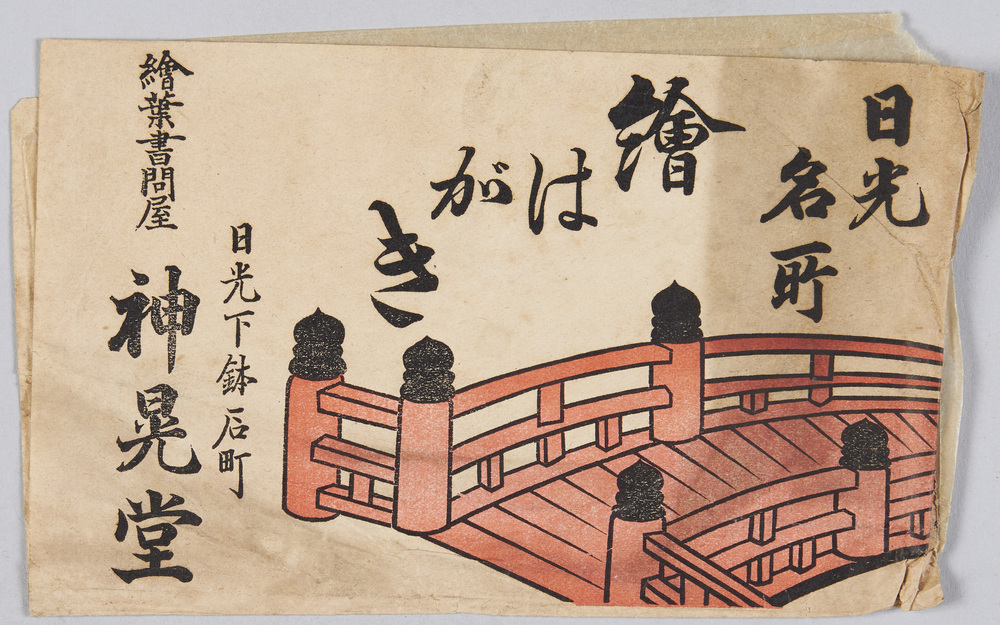 日光
名所
繪はがき
日光下鉢石町
繪葉書問屋
神晃堂